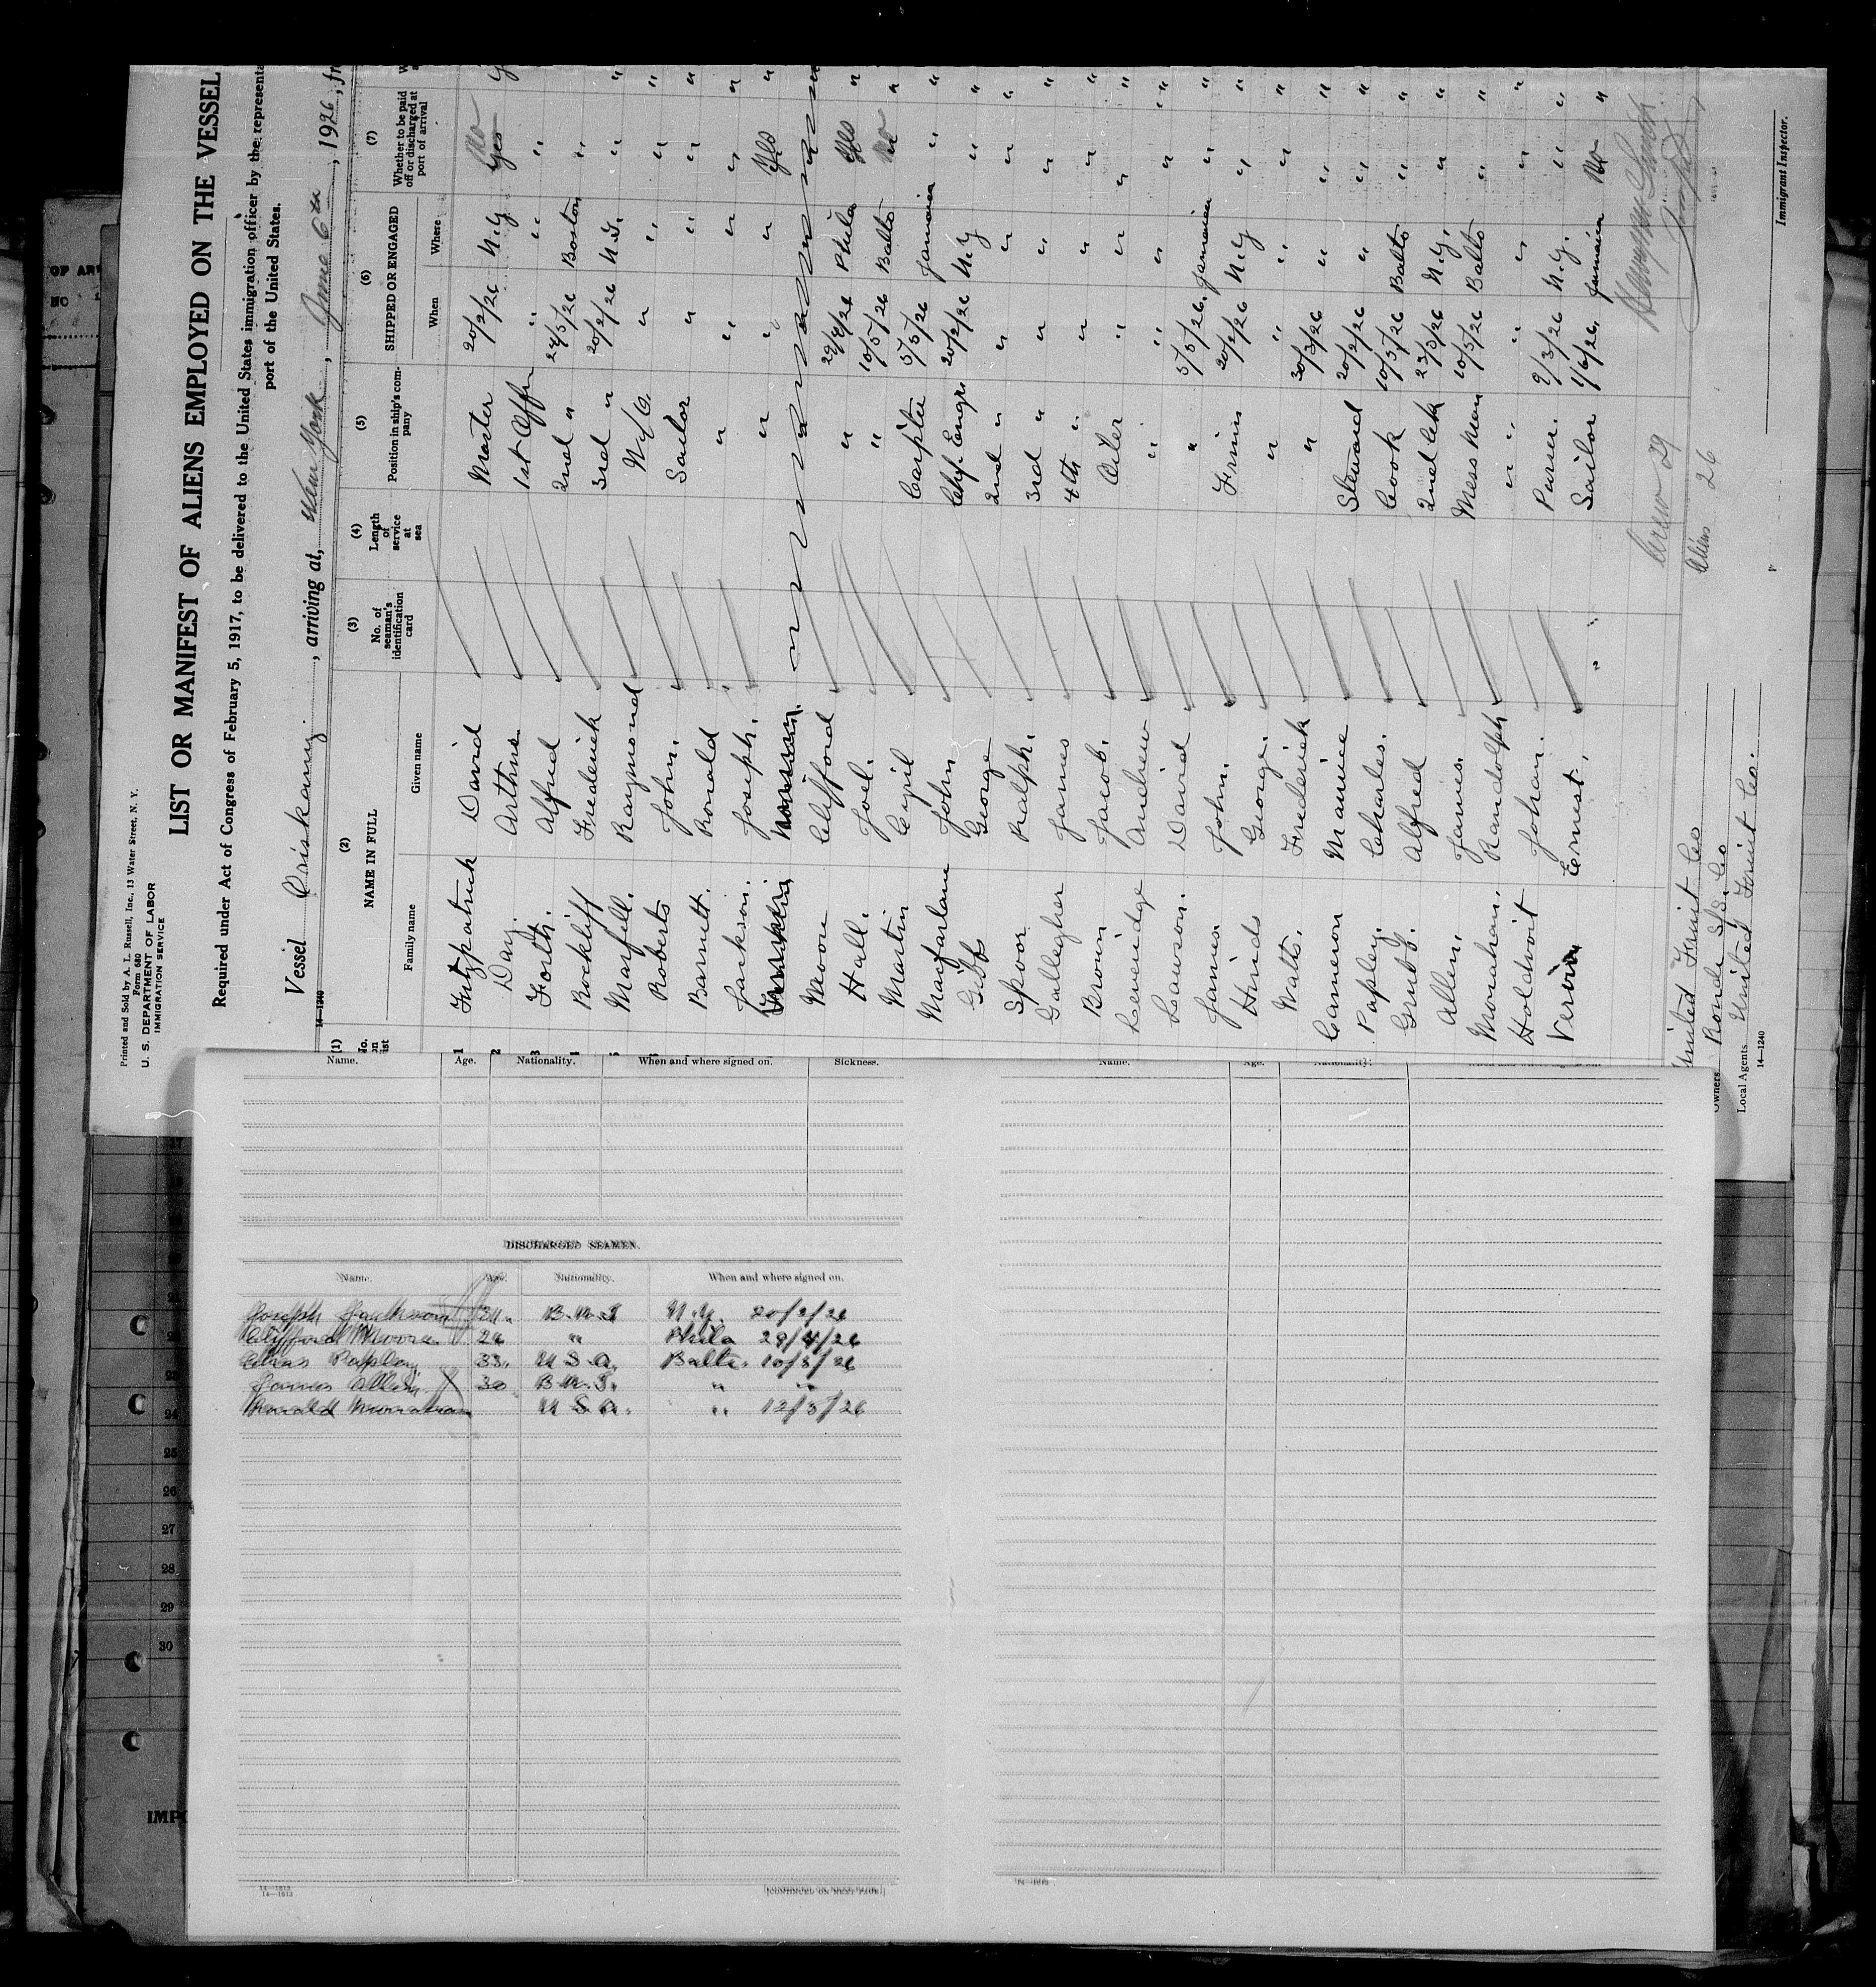 Printed and Sold by A. L. Russell, Inc., 13 Water Street, N. Y.
Form 680
U. S. DEPARTMENT OF LABOR
IMMIGRATION SERVICE
LIST OR MANIFEST OF ALIENS EMPLOYED ON THE VESSEL
Required under Act of Congress of February 5, 1917, to be delivered to the United States immigration officer by the representa
port of the United States.
Vessel Oriskany, arriving at, New York, June 6th, 1926, fr
14—1240
(1) No. on list
(2) NAME IN FULL
Family name Given name
(3) No. of seaman's identification card
(4) Length of service at sea
(5) Position in ship's company
(6) SHIPPED OR ENGAGED
When Where
(7) Whether to be paid off or discharged at port of arrival
1 Fitzpatrick David Master 20/2/26 N.Y. No Yes
2 Day. Arthur 1st Offr " " "
3 Forth. Alfred 2nd " 24/5/26 Boston "
4 Rockliff Frederick 3rd " 20/2/26 N.Y. "
5 Marfell. Raymond W/O. " " "
6 Roberts John. Sailor " " "
Barnett. Ronald " " " "
Jackson. Joseph. " " " Yes
Moore Clifford " 29/4/26 Phila Yes
Hall. Joel. " 10/5/26 Balto No
Martin Cyril Carpter 5/5/26 Jamaica "
Macfarlane John Chf. Engr 20/2/26 N.Y "
Gibb George 2nd " " " "
Spoor Ralph. 3rd " " " "
Gallegher James 4th " " " "
Brown Jacob. Oiler " " "
Levenidge Andrew " " " "
Lawson. David " 5/5/26. Jamaica "
James John. Firmin 20/2/26 N.Y "
Hinds George. " " " "
Watts. Frederick " 30/3/26 " "
Cameron Maurice Steward 20/2/26 " "
Papley. Charles. Cook 10/5/26 Balto "
Grubb. Alfred 2nd Ck 23/3/26 N.Y. "
Allen. James. Mess Man 10/5/26 Balto "
Monahan. Randolph " " " "
Holdvoit Johan. Purser. 9/3/26 N.Y. "
Ernest. Sailor 1/6/26. Jamaica No
Crew 29
Aliens 26
United Fruit Co
Owners Ronde S/S. Co
Local Agents United Fruit Co.
14—1240
Immigrant Inspector.
Name. Age. Nationality. When and where signed on. Sickness.
Name. Age. Nationality.
DISCHARGED SEAMEN.
Name. Age. Nationality. When and where signed on.
Joseph Jackson 21. B.W.I N.Y. 20/2/26
Clifford Moore. 26 " Phila 29/4/26
Chas Papley 33. U S A. Balto. 10/5/26
James Allen. 30 B.W.I. " "
Monahan U S A. " 12/5/26
17
24
25
26
27
28
29
30
IMP
14—1613
[CONTINUED ON NEXT PAGE]
14—1613